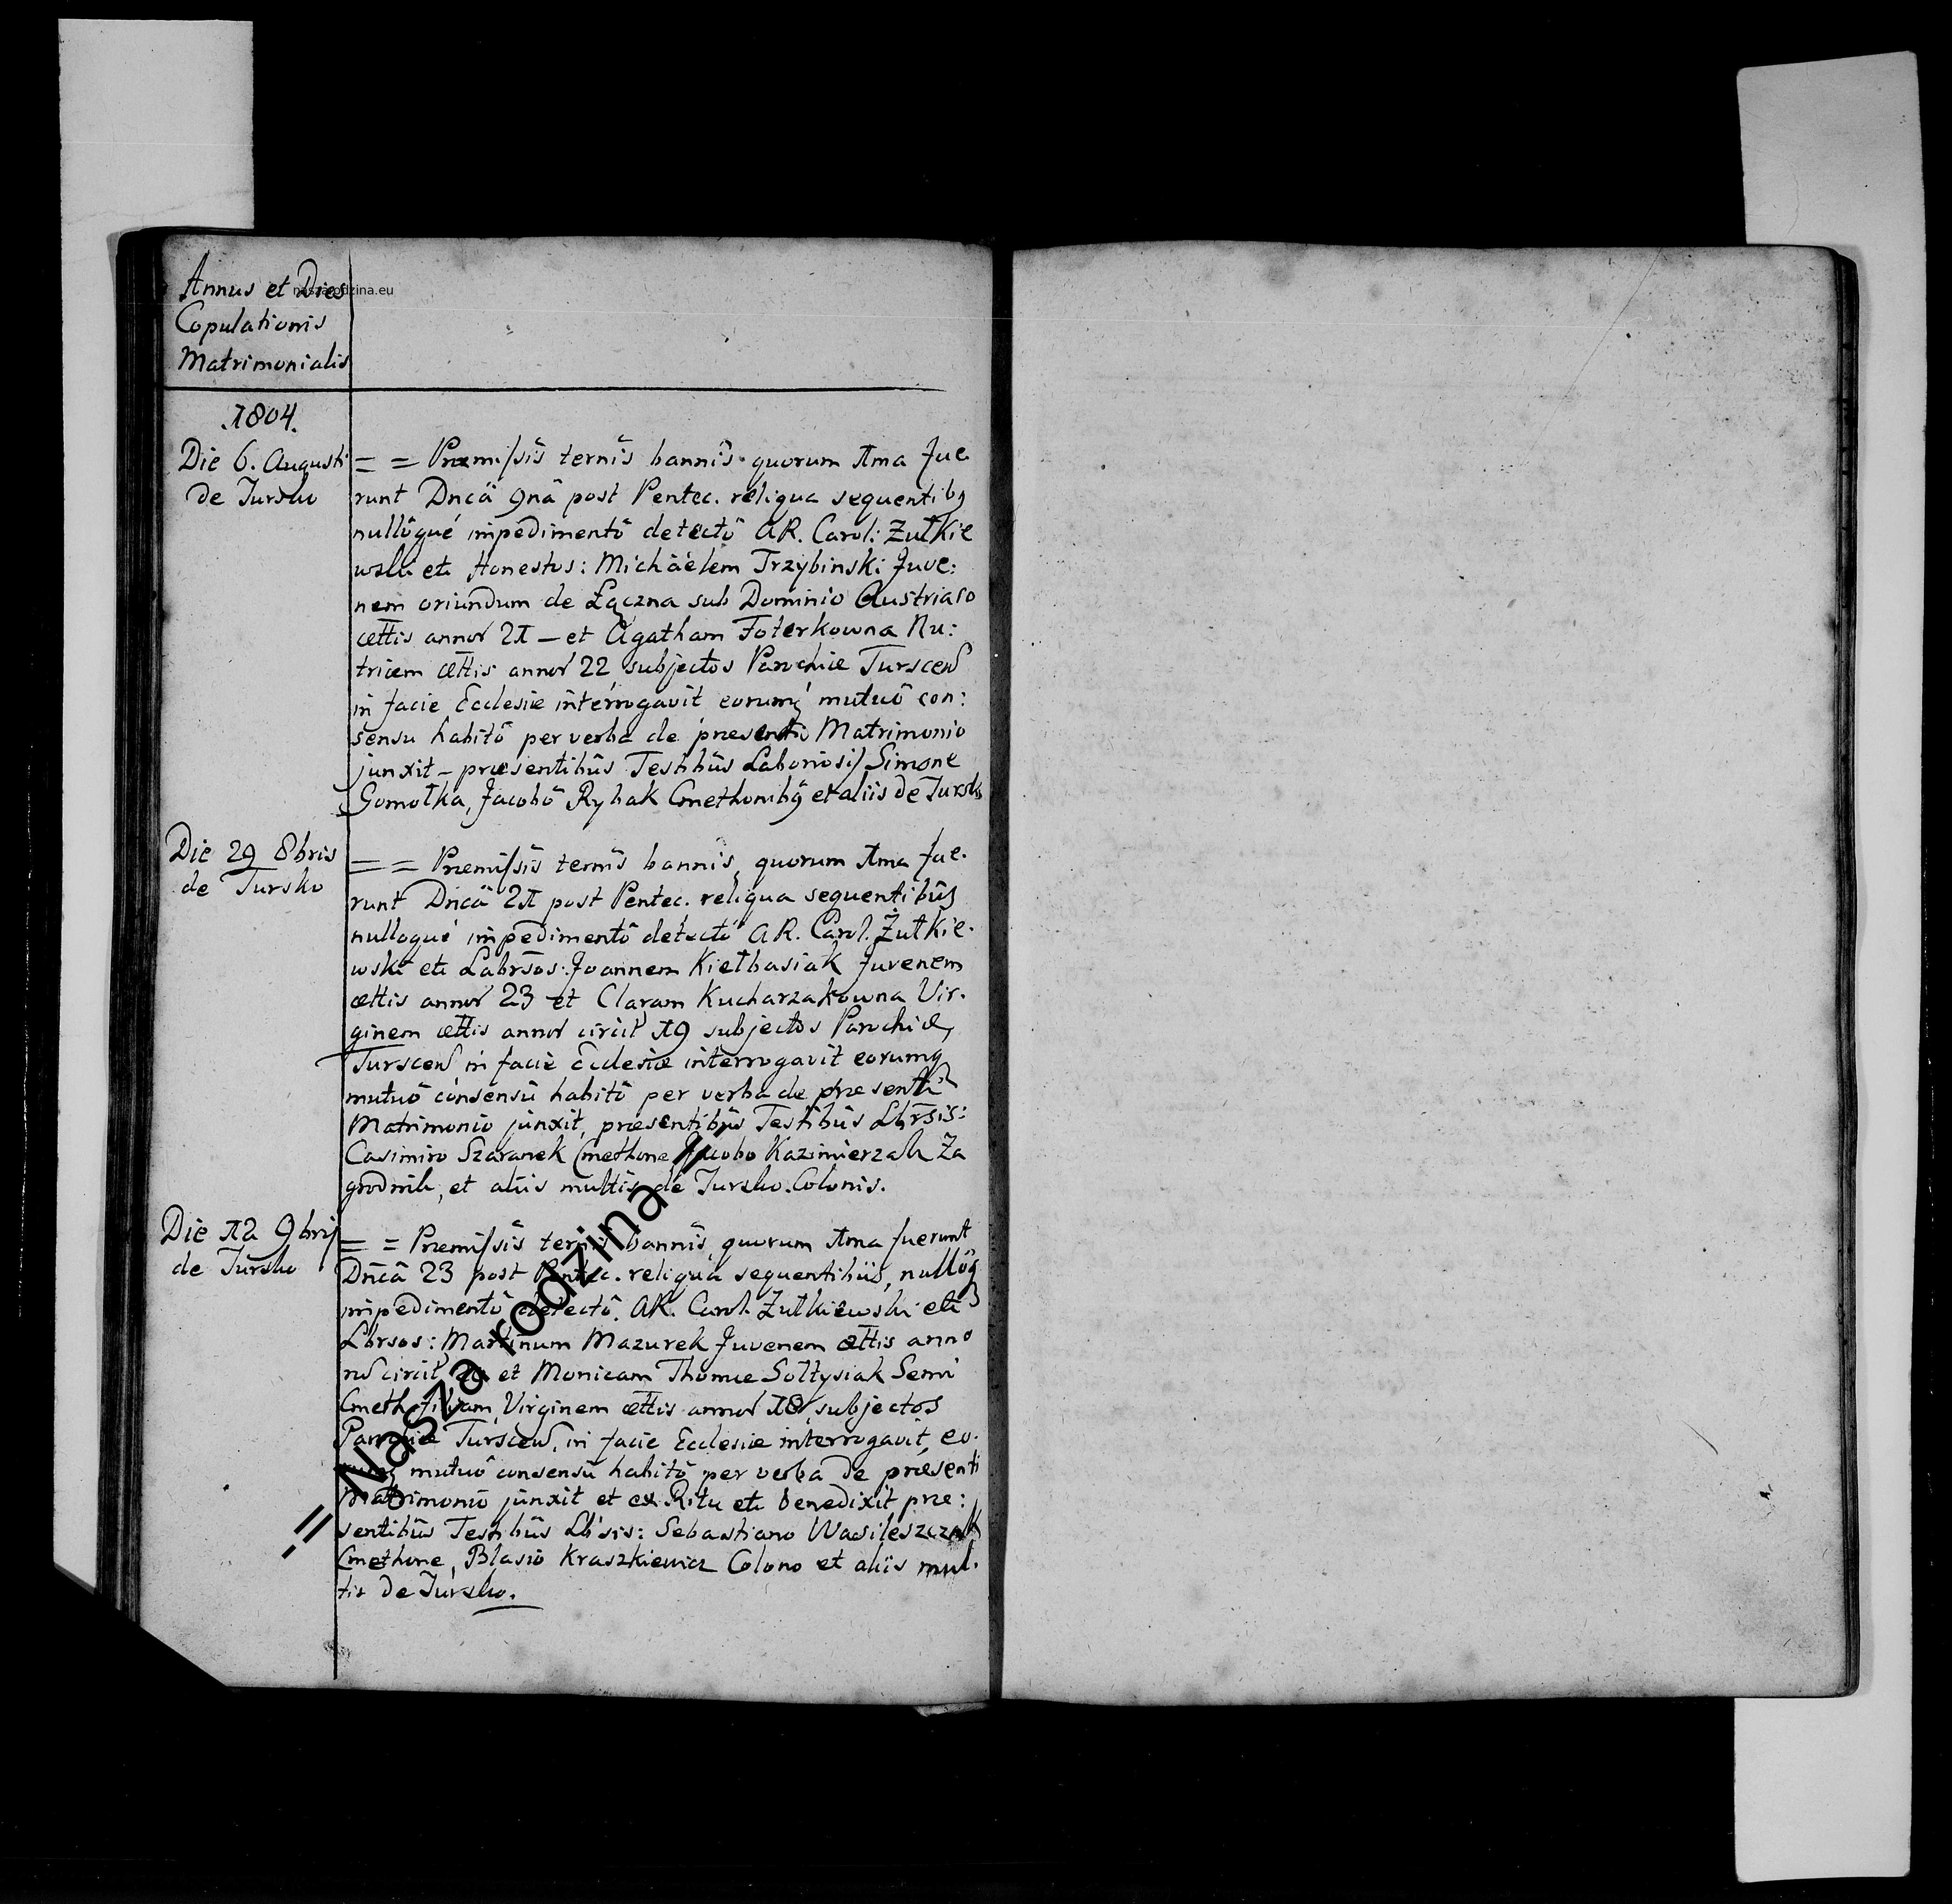 Annus et Dies
Copulationis
Matrimonialis
naszarodzina.eu
1804.
Die 6. Augusti
de Tursko
= = Præmissis ternis bannis quorum 1ma fue
runt Dncâ 9nâ post Pentec. reliqua sequentibq
nullôque impedimentô detectô AR. Carol: Żułkie
wski etc Honestos: Michaëlem Trzybinski Juve:
nem oriundum de Łączna sub Dominio Austriaco
ættis annor 21 — et Agatham Foterkowna Nu:
tricem ættis annor 22 subjectos Parochiæ Turscen
in facie Ecclesiæ interrogavit eorumq mutuô con:
sensu habitô per verba de præsenti Matrimonio
junxit — præsentibus Testibus Laboriosis Simone
Gomołka, Jacobô Rybak Cmethonibq et aliis de Tursko
Die 29 8bris
de Tursko
= = Præmissis ternis bannis, quorum 1ma fue.
runt Dncâ 21 post Pentec. reliqua sequentibus
nulloque impedimentô detectô AR. Carol. Żułkie.
wski etc Labrsos: Joannem Kiełbasiak Juvenem
ættis annor 23 et Claram Kucharzakowna Vir.
ginem ættis annor circit 19 subjectos Parochiæ,
Turscen in facie Ecclesiæ interrogavit eorumq
mutuô consensu habitô per verba de præsenti
Matrimonio junxit, præsentibus Testibus Lbrsis:
Casimiro Szaranek Cmethone Jacobo Kazimierzak Za
grodnik, et aliis multis de Tursko Colonis.
Die 12 9bris
de Tursko
= = Præmissis ternis bannis, quorum 1ma fuerunt
Dncâ 23 post Pentec. reliqua sequentibus, nullôq
impedimentô detectô. AR. Carol. Żułkiewski etc
Lbrsos: Martinum Mazurek Juvenem ættis anno
circit et Monicam Thomæ Sołtysiak Semi
Cmeth. filiam, Virginem ættis annor 18 subjectos
Parochiæ Turscen, in facie Ecclesiæ interrogavit, eo.
rumq mutuô consensu habitô per verba de præsenti
Matrimonio junxit et ex Ritu etc benedixit præ:
sentibus Testibus Lbsis: Sebastiano Wasileszczak
Cmethone, Blasio Kraszkiewicz Colono et aliis mul.
tis de Tursko.
Nasza rodzina